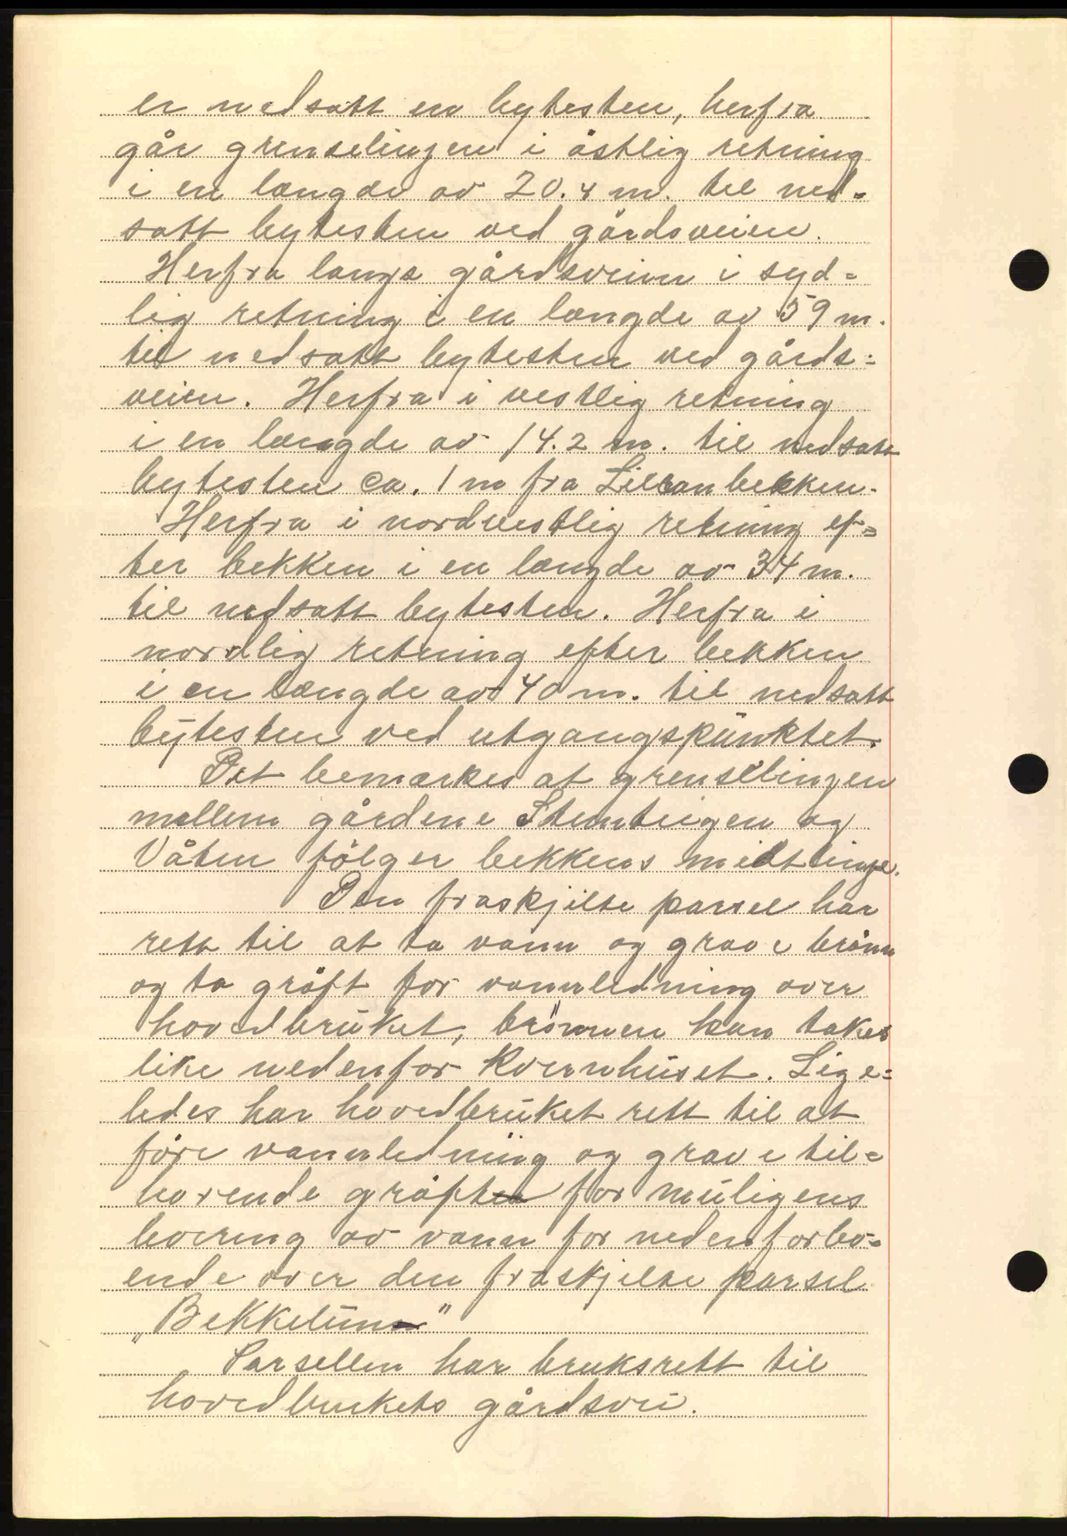 er nedsatt en bytesten, herfra
går grenselinjen i östlig retning
i en længde av 20.4 m. til ned-
satt bytesten ved gårdsveien.
Herfra langs gårdsveien i syd-
lig retning i en længde av 59 m.
til nedsatt bytesten ved gårds-
veien. Herfra i vestlig retning
i en længde av 14.2 m. til nedsatt
bytesten ca. 1 m fra Lilleån bekken.
Herfra i nordvestlig retning ef-
ter bekken i en længde av 34 m.
til nedsatt bytesten. Herfra i
nordlig retning efter bekken
i en længde av 40 m. til nedsatt
bytesten ved utgangspunktet.
Det bemærkes at grenselinjen
mellem gårdene og
Våten fölger bekkens midtlinje.
Den fraskjilte parsel har
rett til at ta vann og grave brönn
og ta gröft for vannledning over
hovedbruket, brönnen kan takes
like nedenfor Kvernhuset. Lige-
ledes har hovedbruket rett til at
före vannledning og grave til-
hörende gröften for muligens
boering av vann for nedenforbo-
ende over den fraskjelte parsel
„Bekkelun"
Parsellen har bruksrett til
hovedbrukets gårdsvei.